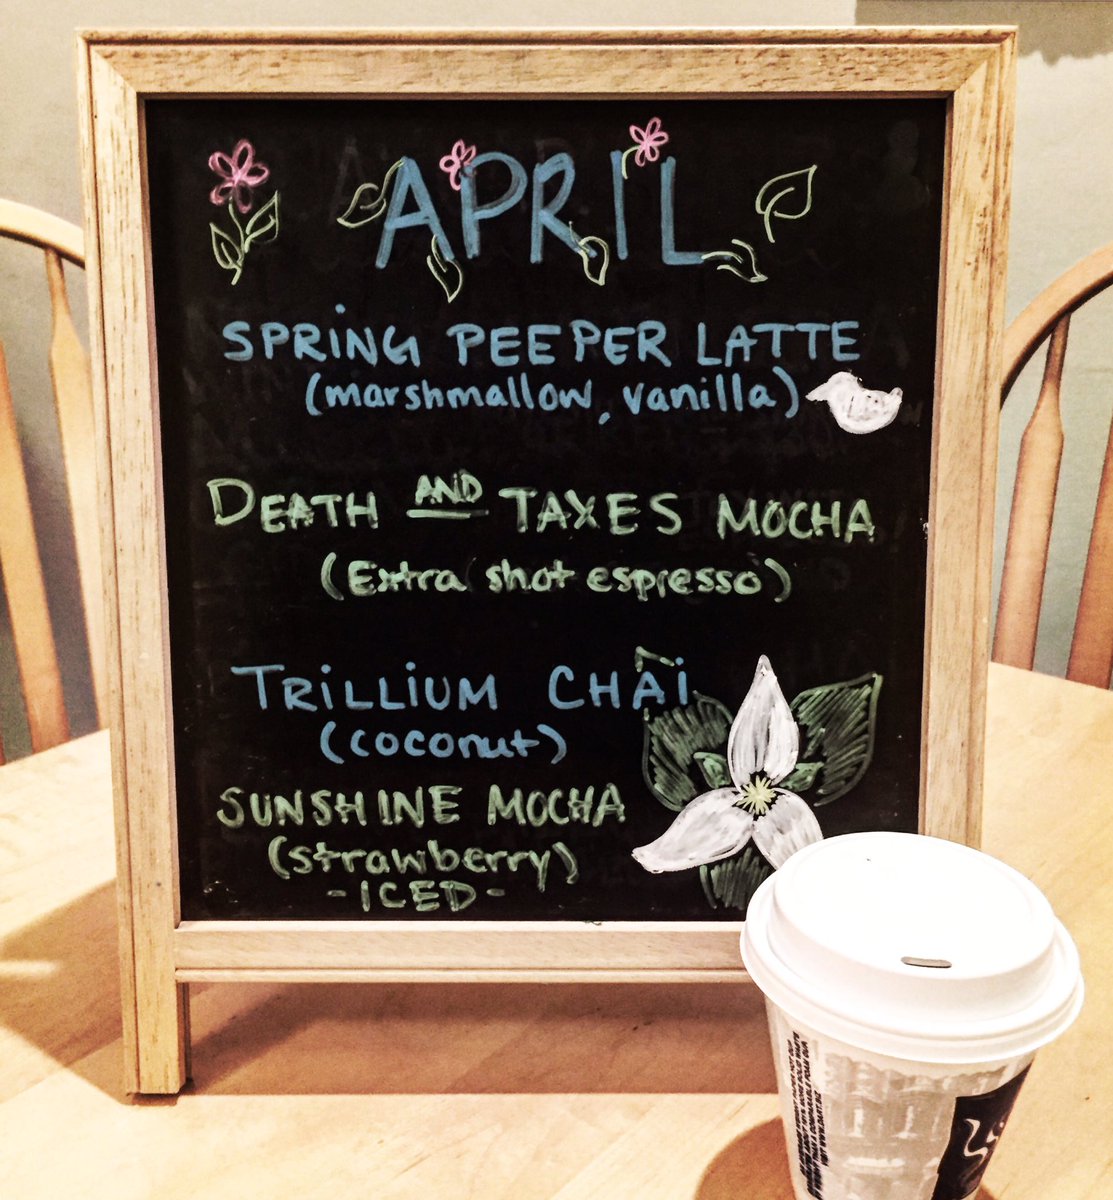 APRIL
SPRING PEEPER LATTE
(marshmallow, vanilla)
DEATH AND TAXES MOCHA
(Extra shot espresso)
TRILLIUM CHAI
(coconut)
SUNSHINE MOCHA
(strawberry)
-ICED-